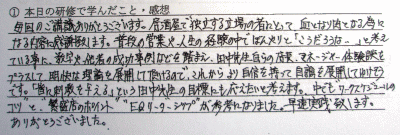 ① 本日の研修で学んだこと・感想
毎回のご講義ありがとうございます。居酒屋で役立する立場の者にとって 血となり肉となる為に
なる内容に感謝致します。普段の営業や人生の経験の中でぼんやりと「こうだろうな…」と考え
ている事に、数字や他者の成功事例などを踏まえ、田中先生自らの店長、マネージャー体験談を
プラスして明快な理論を展開して頂けるので、これからより自信を持って自論を展開して行けそう
です。「皆に勇気を与える」という田中先生の目標にも応えたいと考えます。中でも ワークスケジュールの
コツ と、繁盛店のポイント "EQリーダーシップ" が参考になりました。早速実践致します。
ありがとうございました。